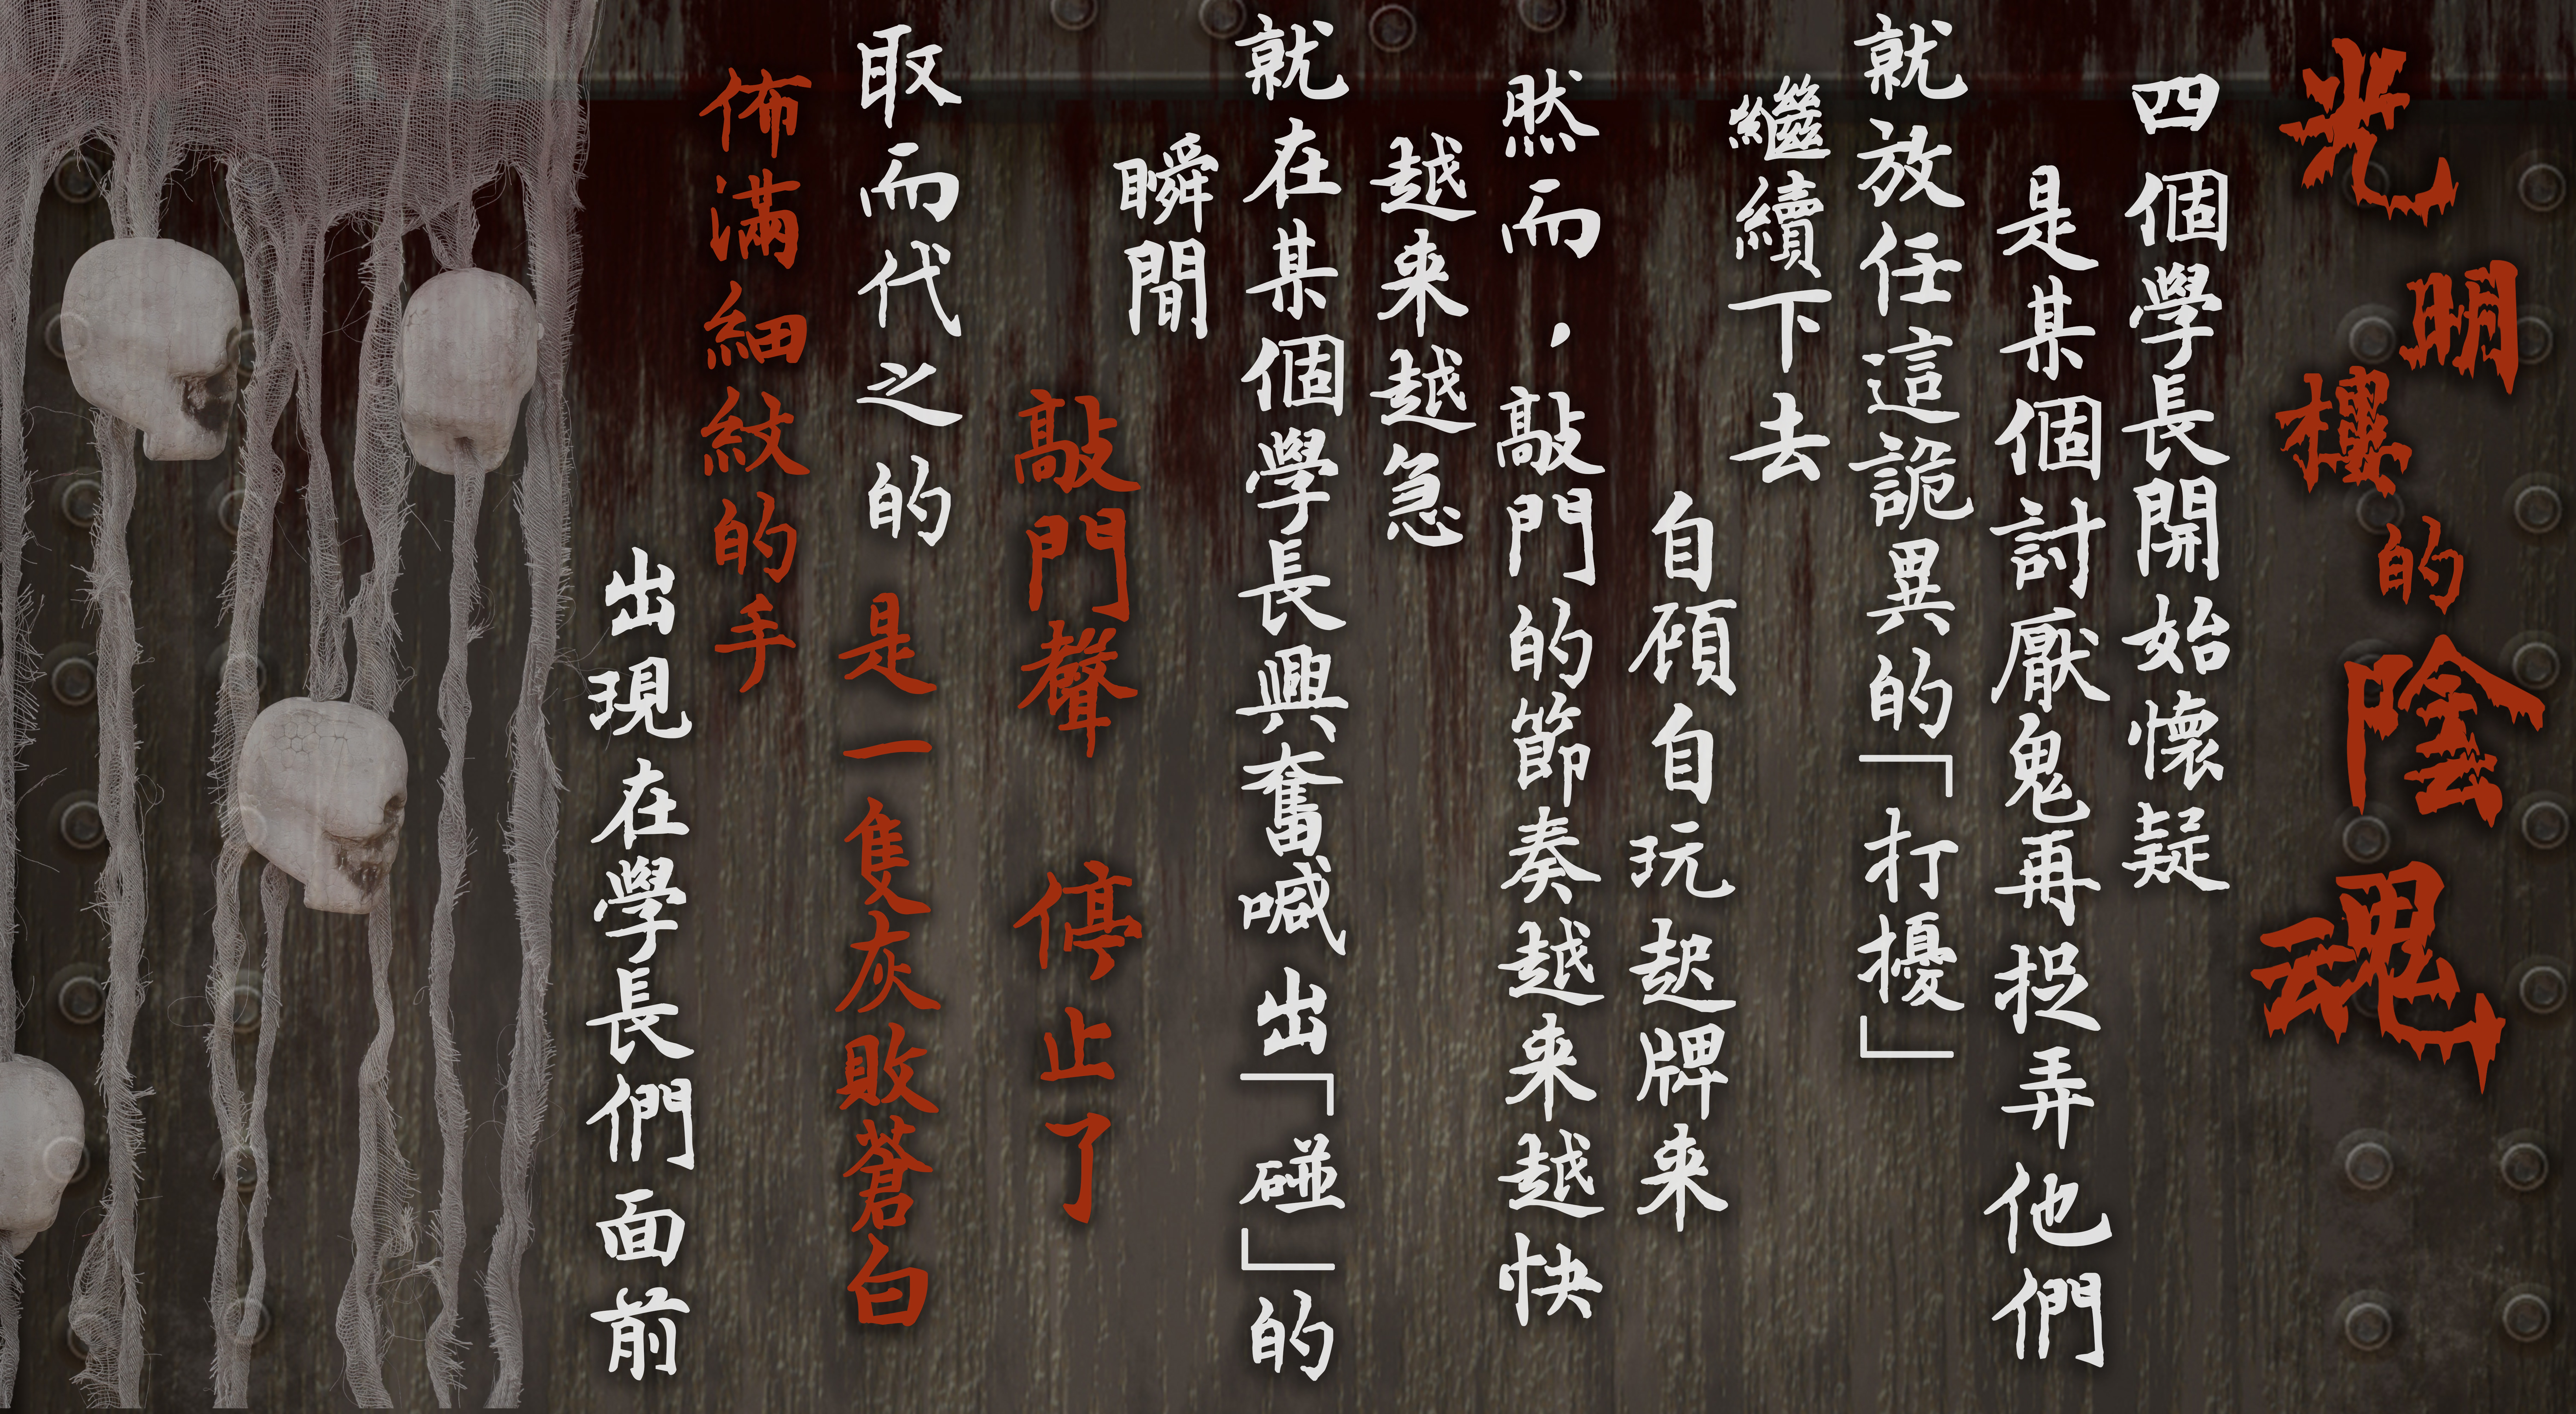 光明樓的陰魂
四個學長開始懷疑
是某個討厭鬼再捉弄他們
就放任這詭異的「打擾」
繼續下去
自顧自玩起牌來
然而，敲門的節奏越來越快
越來越急
就在某個學長興奮喊出「碰」的
瞬間
敲門聲 停止了
取而代之的 是一隻灰敗蒼白
佈滿細紋的手
出現在學長們面前